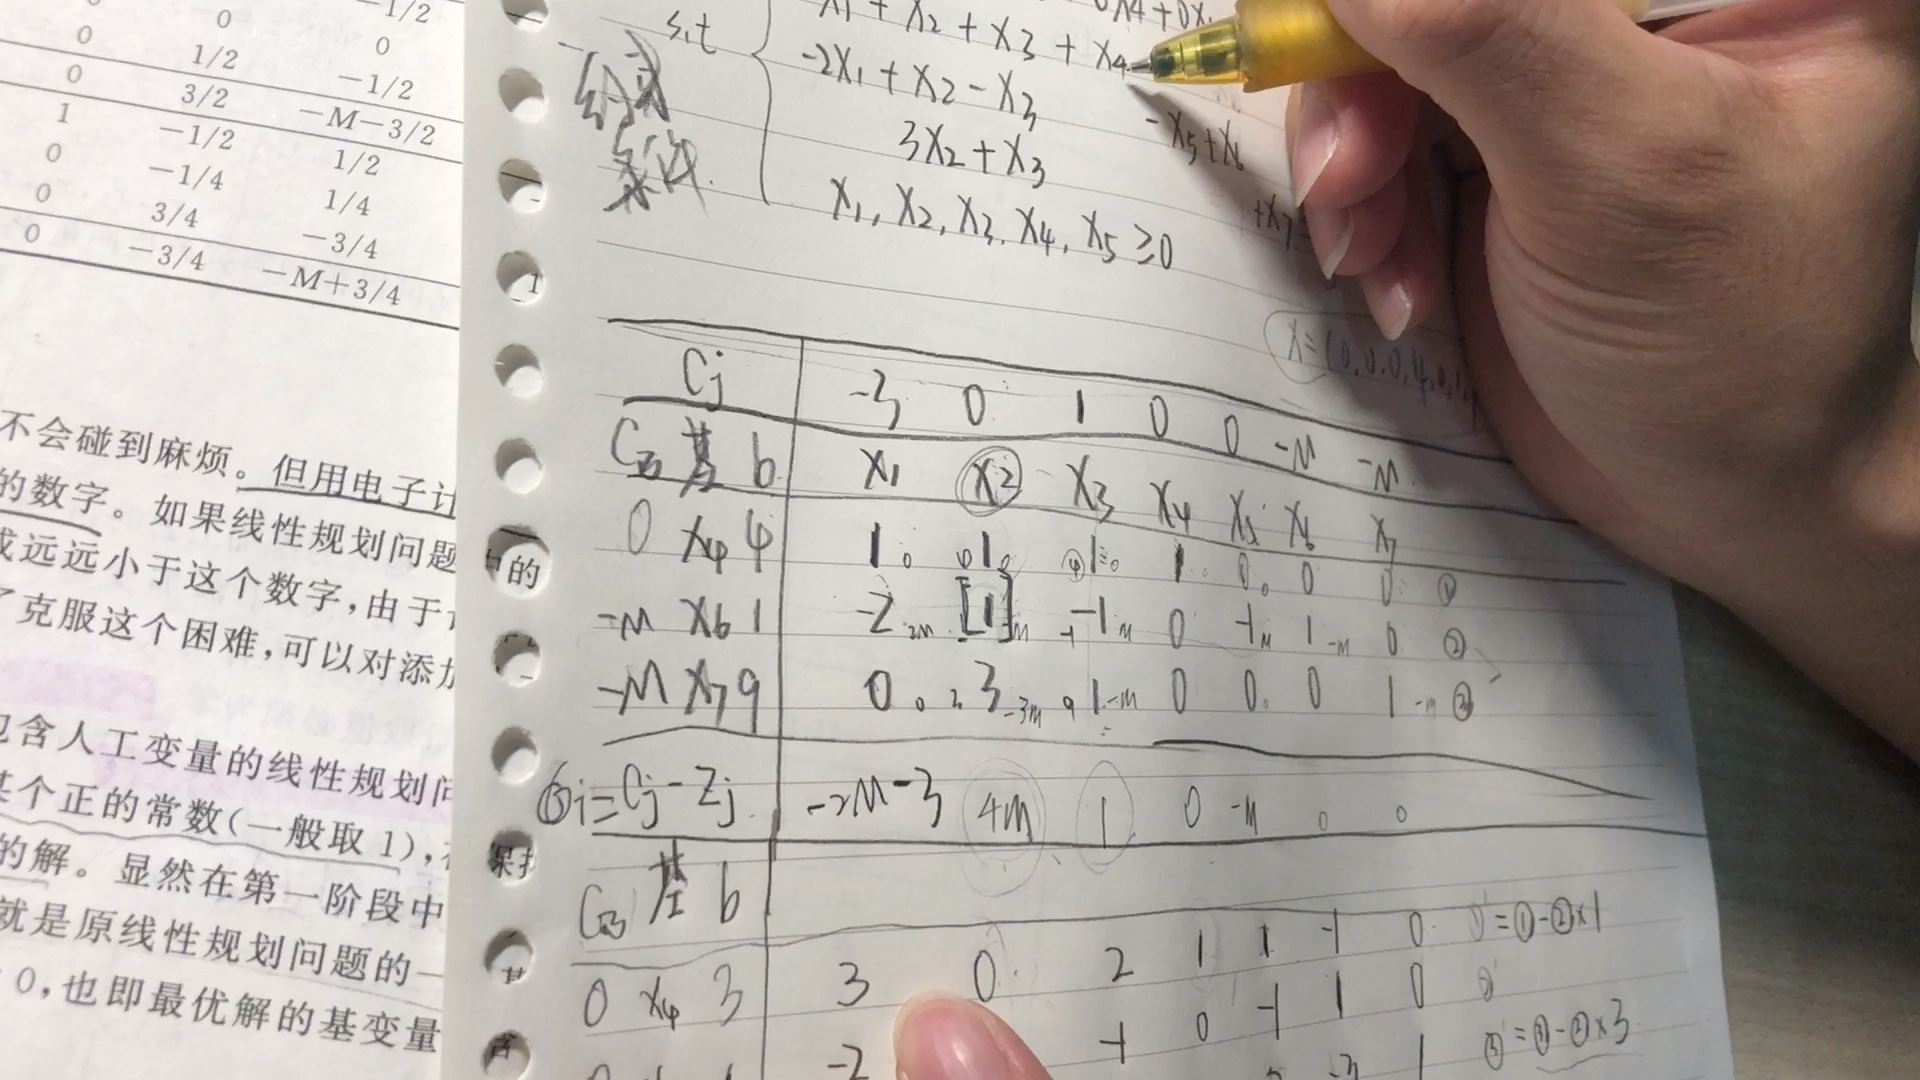 -1/2
0 0 0
0 1/2 -1/2
0 3/2 -M-3/2
1 -1/2 1/2
0 -1/4 1/4
0 3/4 -3/4
0 -3/4 -M+3/4
不会碰到麻烦。但用电子计
的数字。如果线性规划问题
或远远小于这个数字,由于
了克服这个困难,可以对添加
包含人工变量的线性规划问
某个正的常数(一般取1),
的解。显然在第一阶段中
就是原线性规划问题的一
0,也即最优解的基变量
s.t x1 + x2 + x3 + x4
-2x1 + x2 - x3 -x5+x6
3x2 + x3 +x7
x1, x2, x3, x4, x5 ≥0
约束
条件
Cj -3 0 1 0 0 -M -M
CB 基 b x1 x2 x3 x4 x5 x6 x7
0 x4 4 1 0 1 0 1 0 1 0 0 0 ①
-M x6 1 -2 2M [1] M -1 M 0 -1 M 1 -M 0 ②
-M x7 9 0 0 3 -3M 9 1 -M 0 0 0 1 -M ③
σi = Cj - Zj -2M-3 4M 1 0 -M 0 0
CB 基 b
0 x4 3 3 0 2 1 1 -1 0 ①' = ①-②×1
-2 -1 0 -1 1 0 ②'
-3 1 ③' = ③-②×3